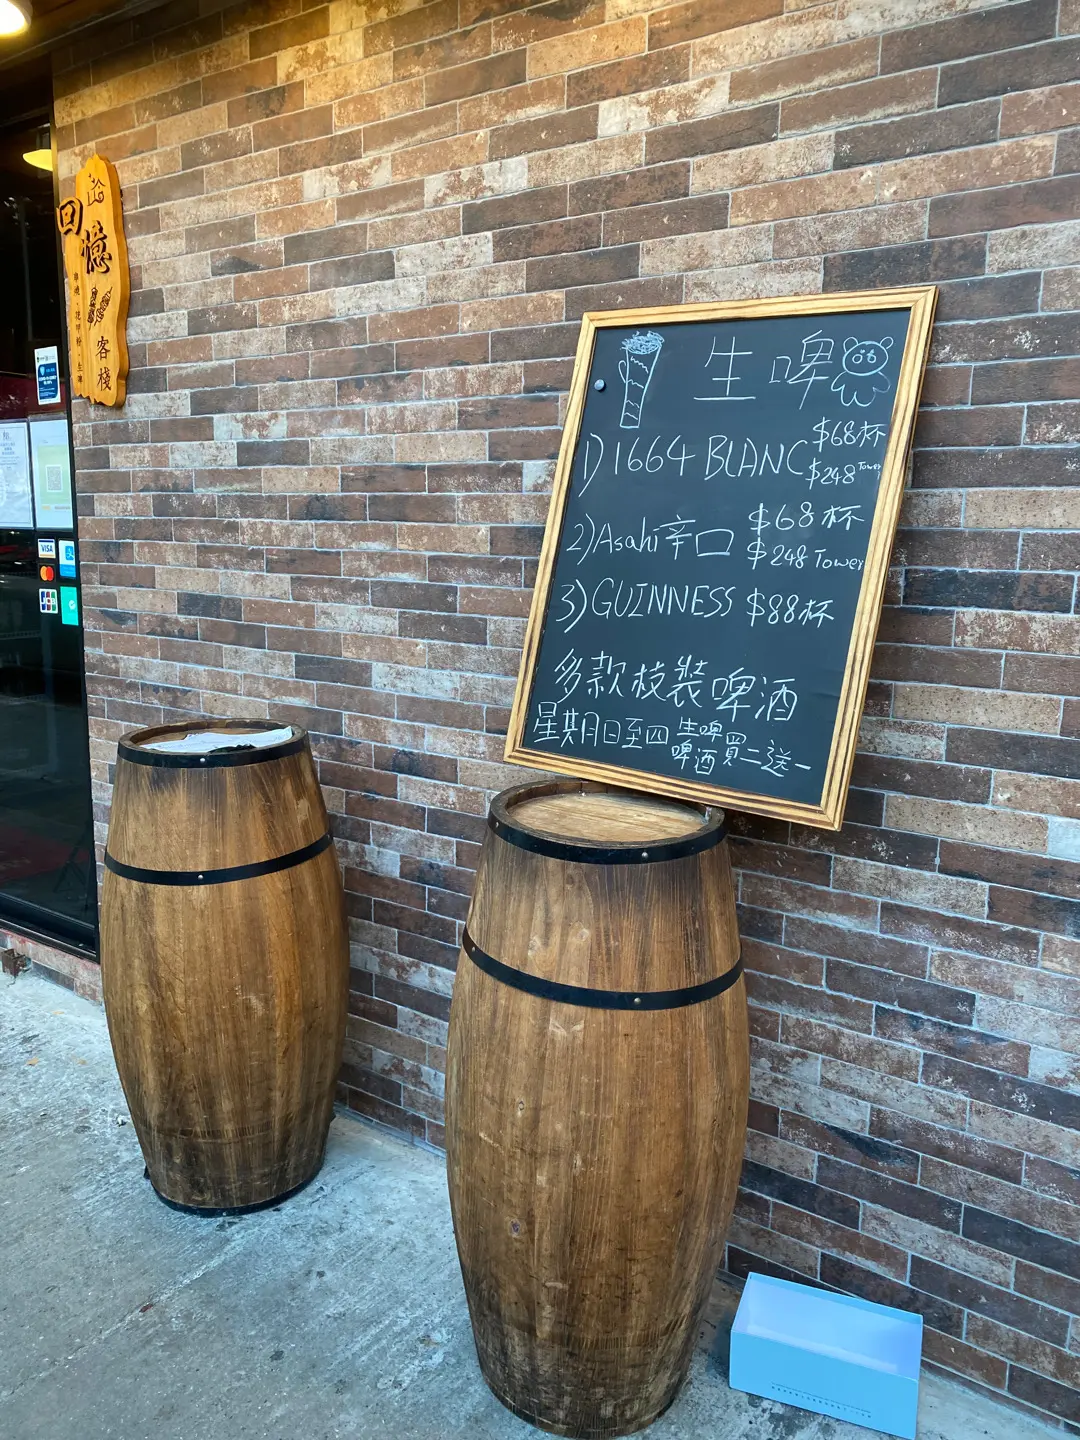 回
憶
客
棧
串燒·花甲粉·生啤
VISA
JCB
生啤
1) 1664 BLANC $68杯
$248 Tower
2) Asahi 辛口 $68杯
$248 Tower
3) GUINNESS $88杯
多款枝裝啤酒
星期日至四 生啤
啤酒買二送一